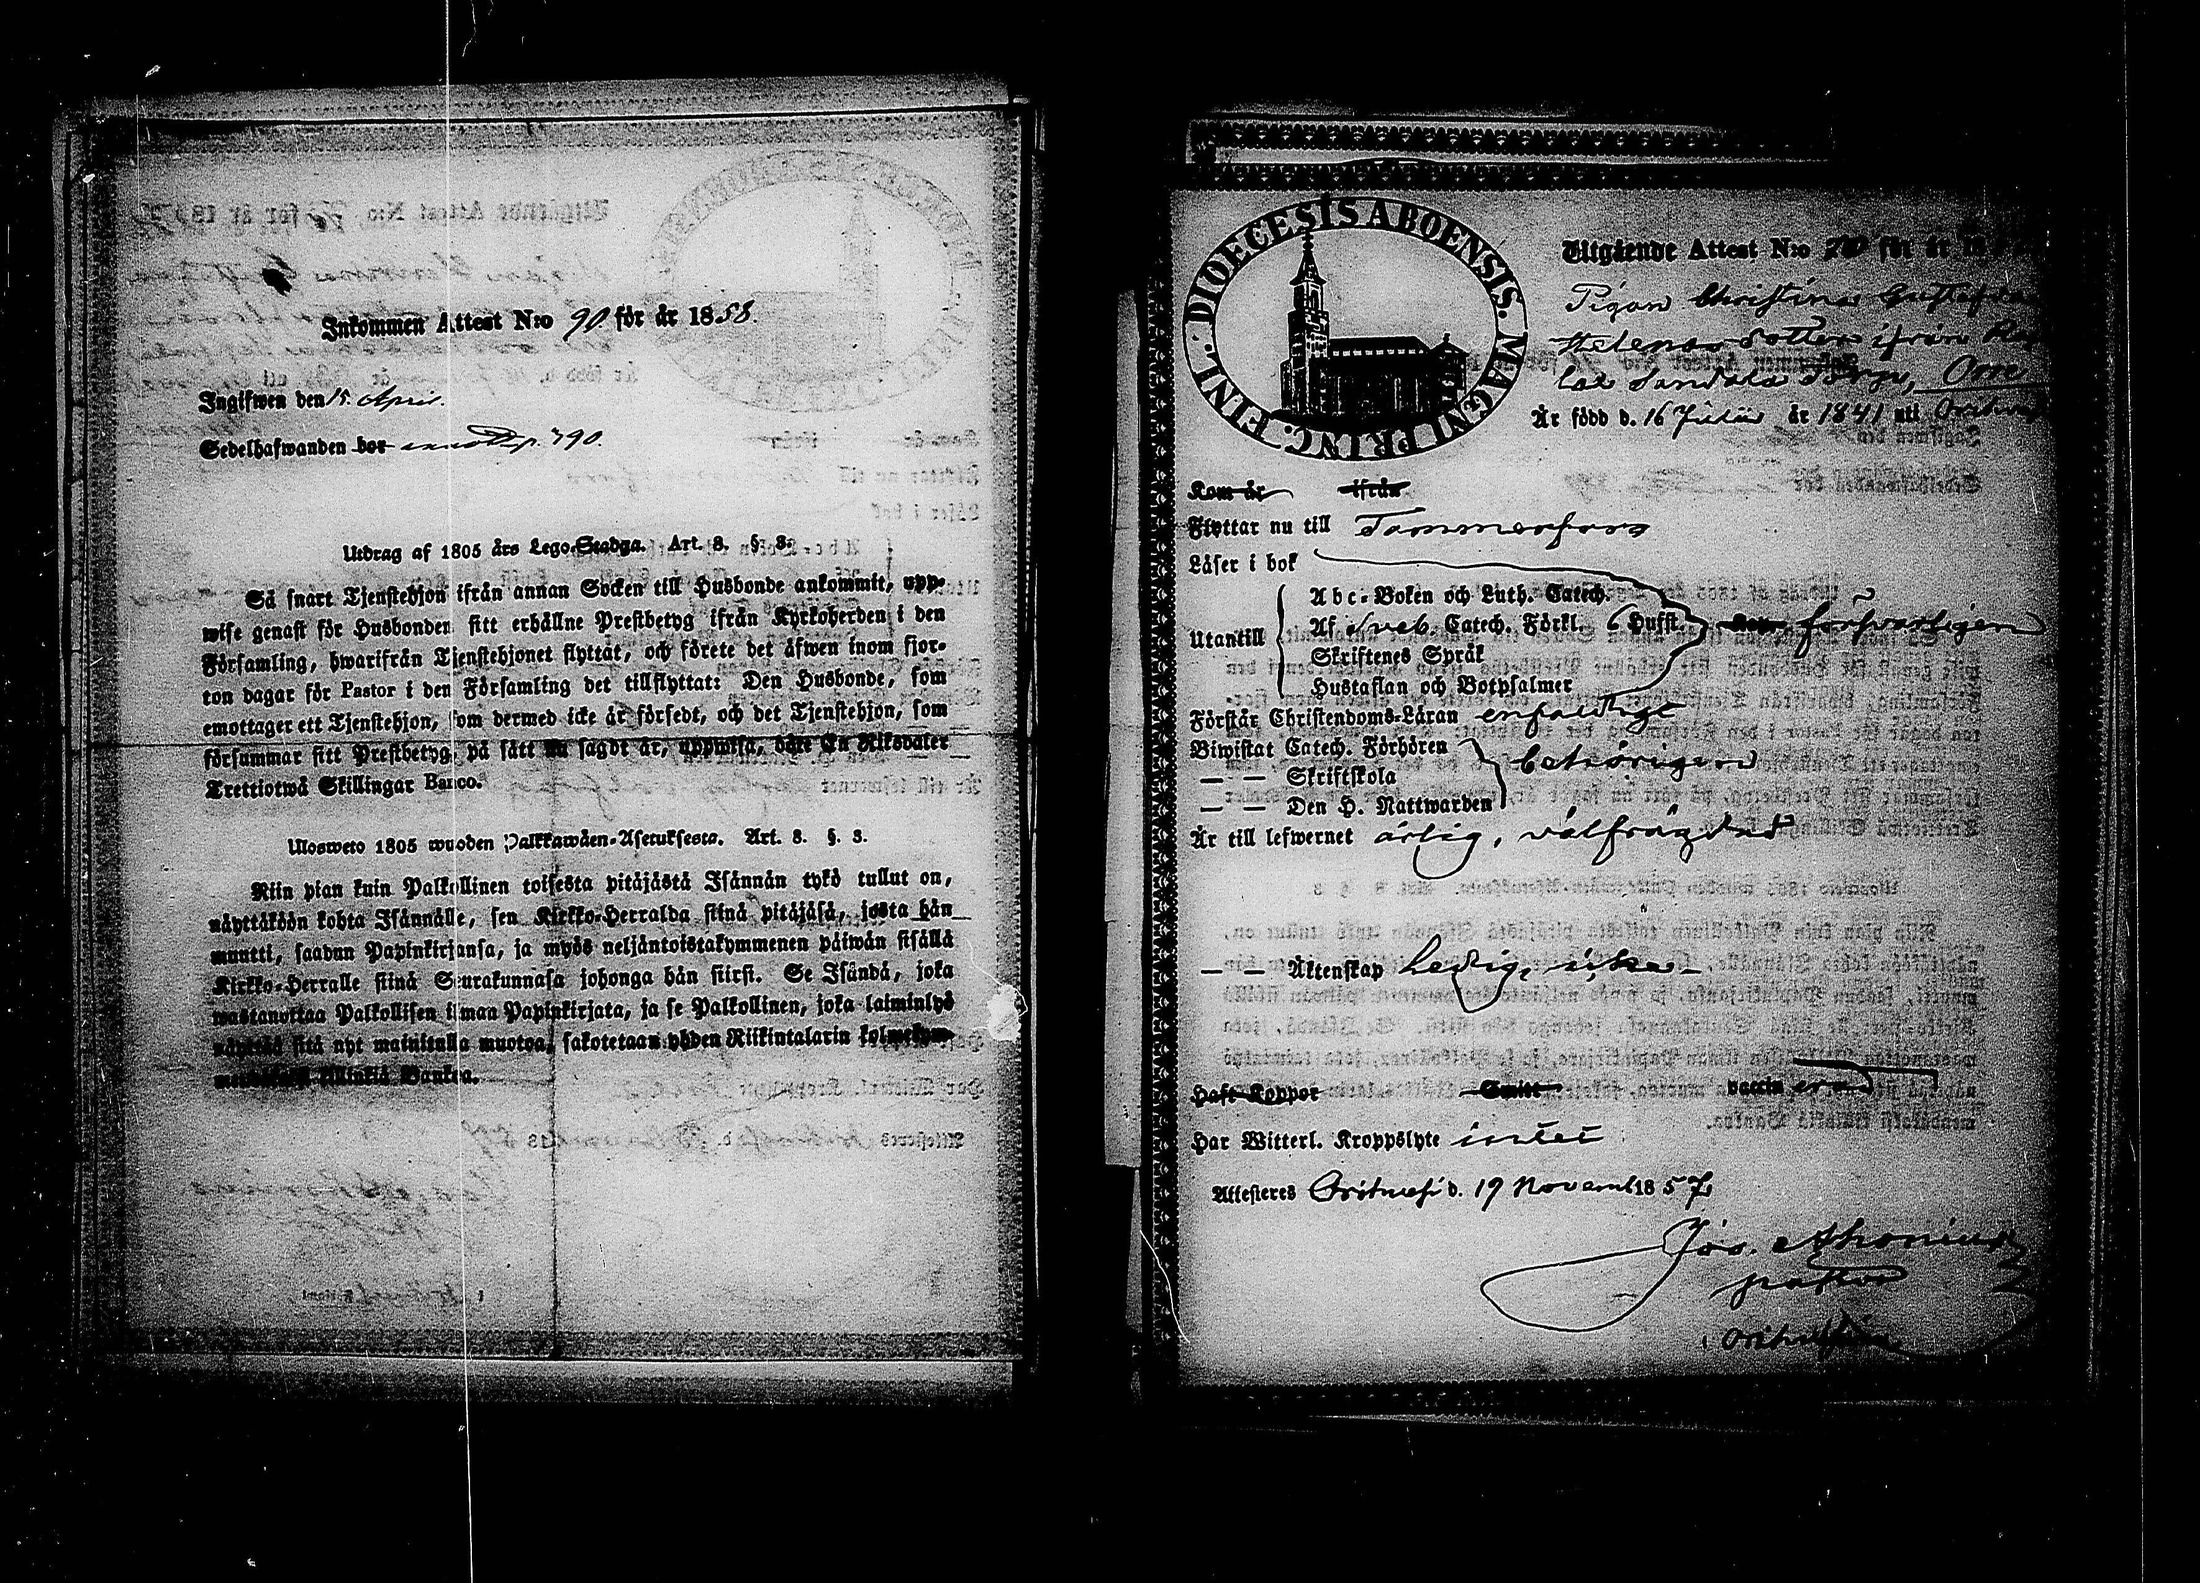 Inkommen Attest N:o 90 för år 1858.
Ingifwen den 15 April.
Sedelhafwanden bor
Utdrag af 1805 års Lego-Stadga. Art. 8. §. 3.
Så snart Tjenstehjon ifrån annan Socken till Husbonde ankommit, upp-
wise genast för Husbonden sitt erhållne Prestbetyg ifrån Kyrkoherden i den
Församling, hwarifrån Tjenstehjonet flyttat, och förete det äfwen inom fjor-
ton dagar för Pastor i den Församling det tillflyttat: Den Husbonde, som
emottager ett Tjenstehjon, som dermed icke är försedt, och det Tjenstehjon, som
försummar sitt Prestbetyg, på sätt nu sagdt är, uppwisa, böte En Riksdaler
Trettiotwå Skillingar Banco.
Ulosweto 1805 wuoden Palkkawäen-Asetuksesta. Art. 8. §. 3.
Niin pian kuin Palkollinen toisesta pitäjästä Isännän tykö tullut on,
näyttäköön kohta Isännälle, sen Kirkko-Herralda siinä pitäjäsä, josta hän
muutti, saadun Papinkirjansa, ja myös neljäntoistakymmenen päiwän sisällä
Kirkko-Herralle siinä Seurakunnasa johonga hän siirsi. Se Isändä, joka
wastanottaa Palkollisen ilman Papinkirjata, ja se Palkollinen, joka laiminlyö
näyttää sitä nyt mainitulla muotoa, sakotetaan yhden Riikintalarin kolmekym-
mendäkaksi killinkiä Bankoa.
DIOECESIS ABOENSIS. MAGNI PRINC. FINL.
Utgående Attest N:o för år 18
Pigan Christina Gustafva
Helena dotter ifrån
Är född d. 16 Julii år 1841 uti
Kom år ifrån
Flyttar nu till Tammerfors
Läser i bok
Utantill
Abc-Boken och Luth. Catech.
Af Sveb. Catech. Förkl. 6 Hufst. försvarligen
Skriftenes Språk
Hustaflan och Botpsalmer
Förstår Christendoms-Läran enfaldigt
Biwistat Catech. Förhören
— — Skriftskola behörigen
— — Den H. Nattwarden
Är till lefwernet ärlig, välfrägdad
— — Äktenskap Ledig,
Haft Koppor Smitt vaccin
Har Witterl. Kroppslyte intet
Attesteres d. 19 Novemb 1857
Jos.
pastor
i